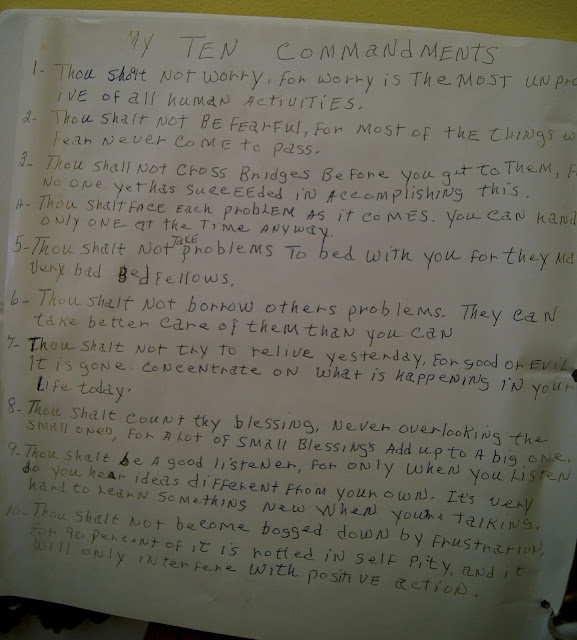 MY TEN COMMANDMENTS
1- Thou shalt NOT WORRY, FOR WORRY is THE MOST UNPRO
IVE of all human ACTIVITIES.
2- Thou shalt NOT BE FEARFUL, FOR MOST OF THE THINGS W
FEAR NEVER COME to pass.
3- Thou shall NOT CROSS BRIDGES BEFORE YOU get to THEM, F
NO ONE yet has SUCCEEDED in ACCOMPLISHING this.
4- Thou shalt FACE EACH PROBLEM AS it COMES. YOU CAN HAND
ONLY ONE at the TIME ANYWAY.
5- Thou shalt NOT TAKE problems To bed with you for they MA
Very bad Bedfellows.
6- Thou shalt NOT borrow others problems. They CAN
take better care of them than you CAN
7- Thou shalt NOT try to relive yesterday, For good or EVIL
It is gone. Concentrate ON what is happening IN your
Life today.
8- Thou shalt count thy blessing, Never overlooking the
small ones, for A lot of small Blessings Add up to A big one.
9- Thou shalt be A good listener, for only when you Listen
do you hear ideas different from your own. It's very
hard to learn something New when you're talking.
10- Thou shalt Not become bogged down by frustration,
for 90 percent of it is rotted in self pity, and it
will only interfere with positive action.